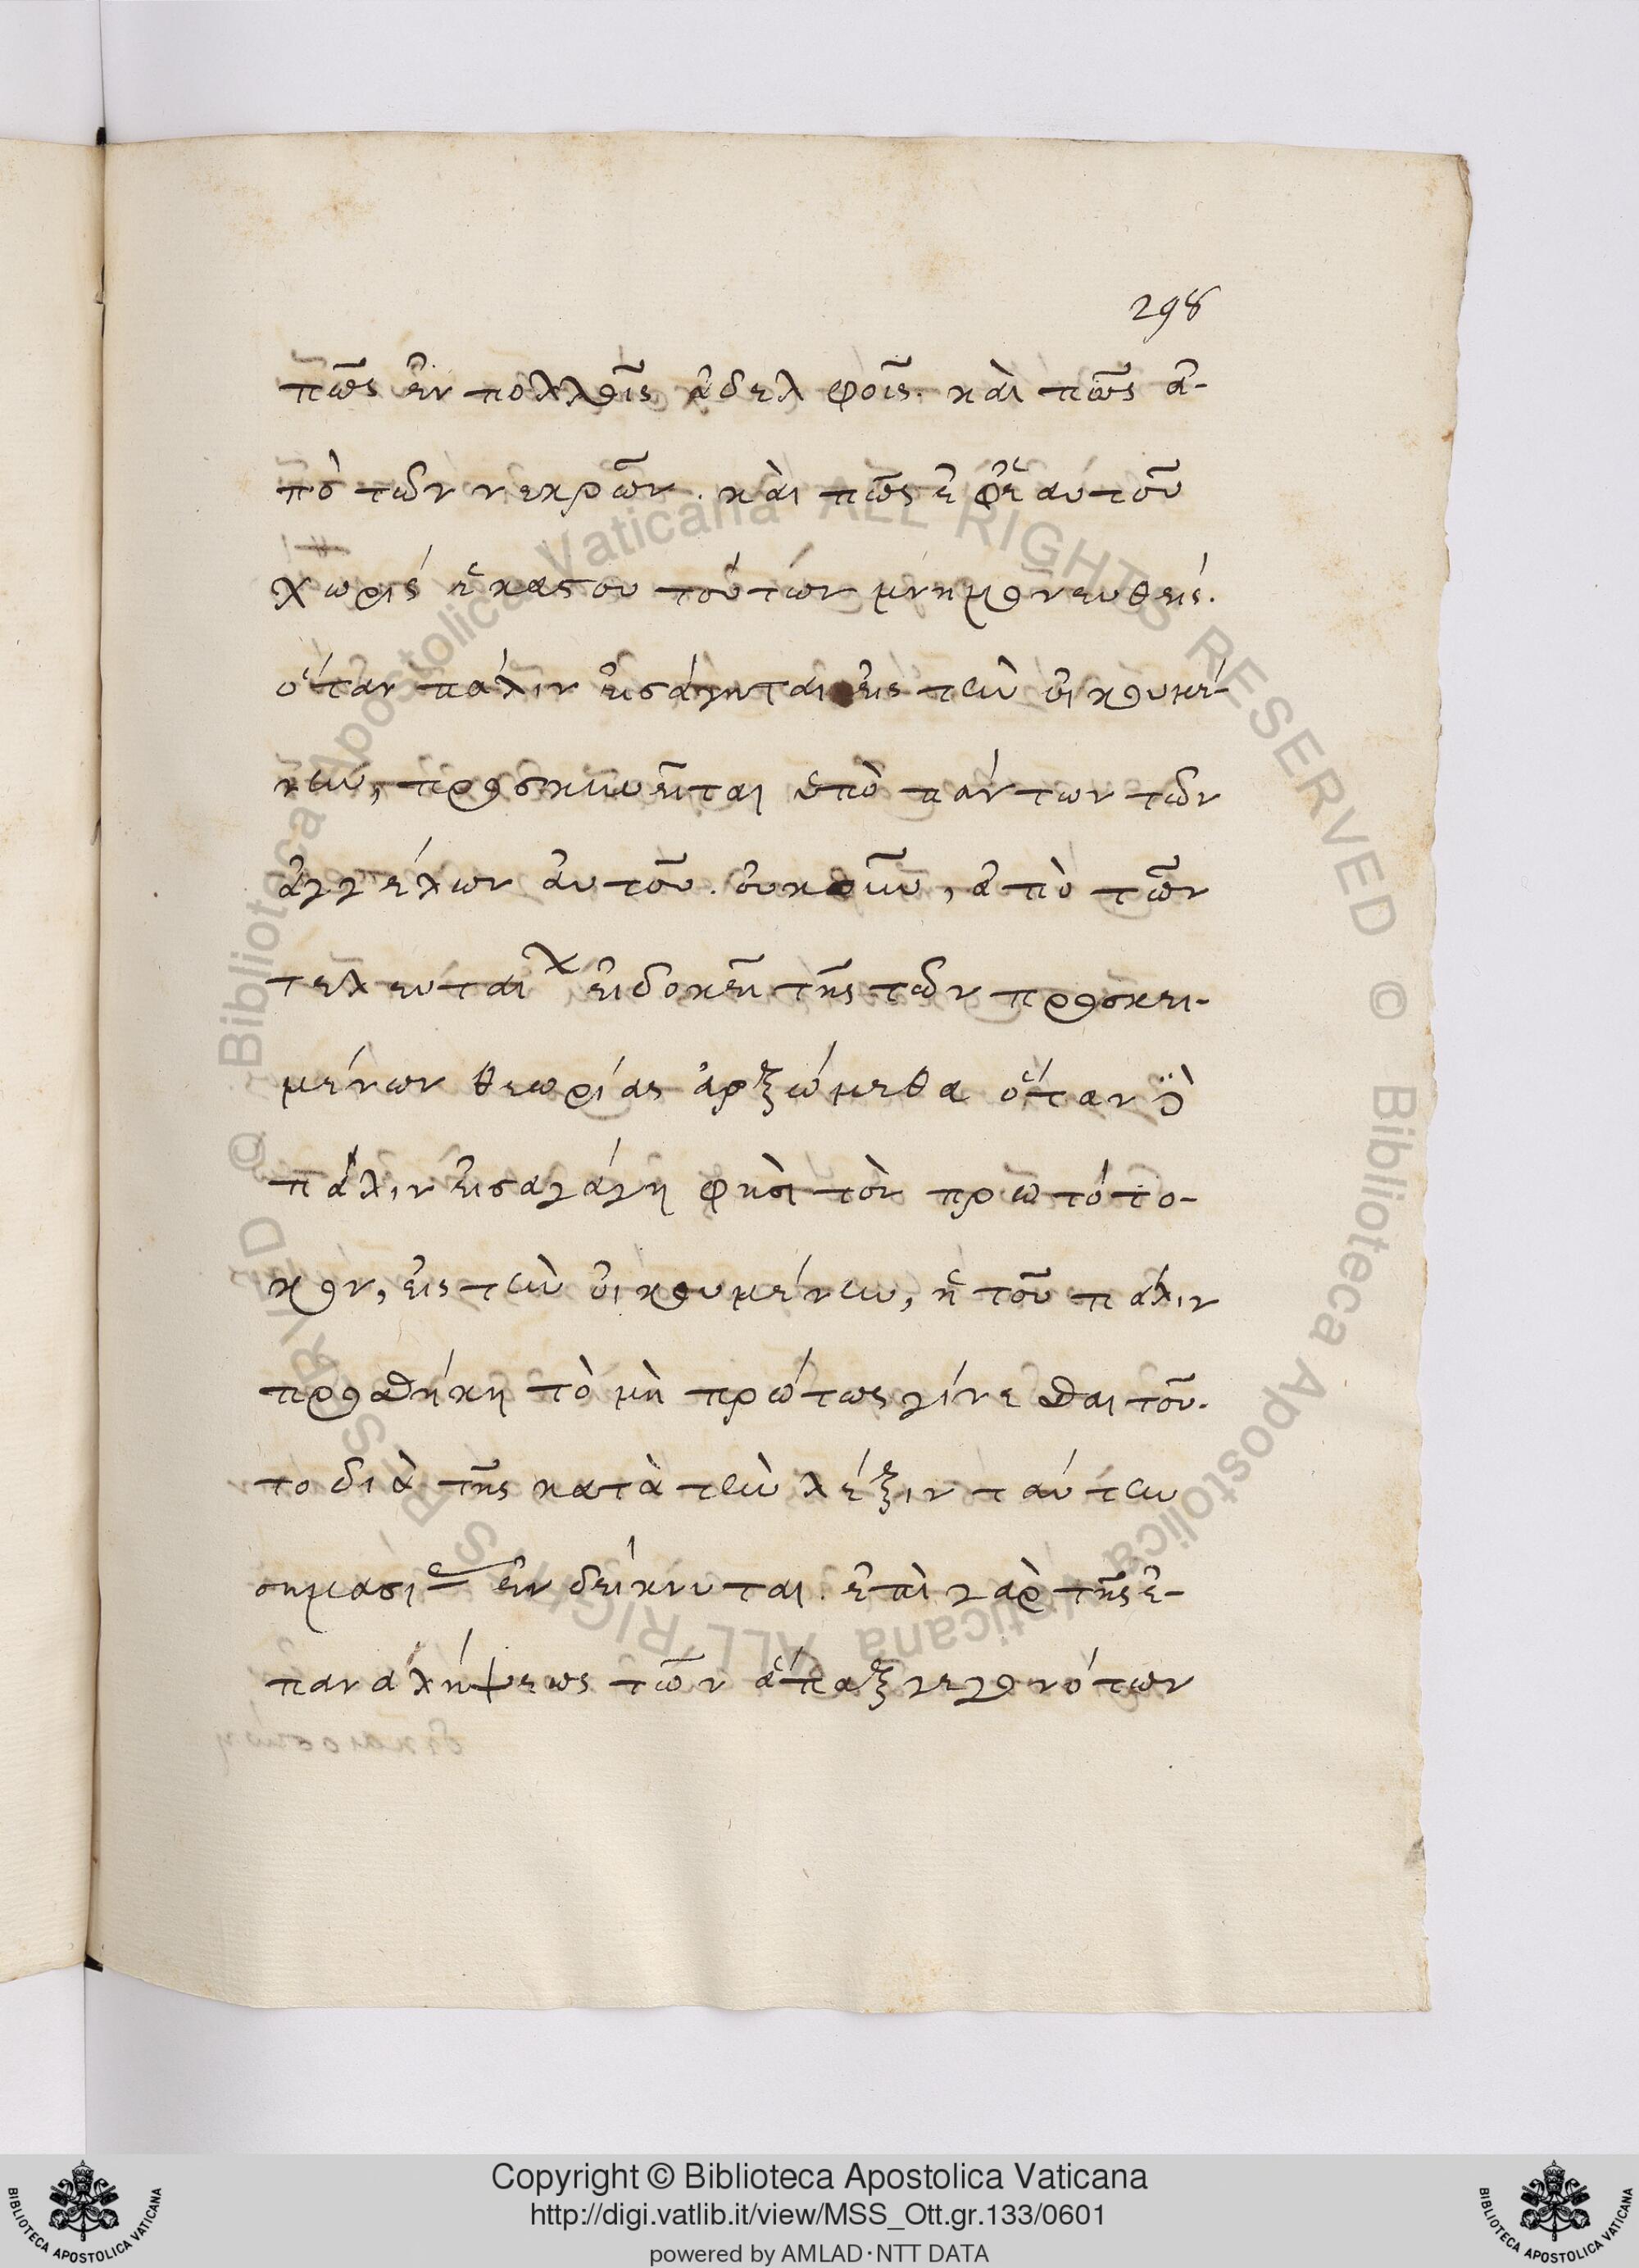 298
πῶς ἐν πολλοῖς ἀδελφοῖς. καὶ πῶς ἀ-
πὸ τῶν νεκρῶν. καὶ πῶς ἐφ' ἑαυτοῦ
χωρὶς ἑκάστου τούτων μνημονευθείς.
ὅταν πάλιν εἰσάγηται εἰς τὴν οἰκουμέ-
νην, προσκυνεῖται ὑπὸ πάντων τῶν
ἀγγέλων αὐτοῦ. οὐκοῦν, ἀπὸ τῶν
τελευταί εἰ δοκεῖ τῆς τῶν προσκει-
μένων θεωρίας ἀρξώμεθα ὅταν δὲ
πάλιν εἰσαγάγη φησὶ τὸν πρωτότο-
κον, εἰς τὴν οἰκουμένην, ἡ τοῦ πάλιν
προσθήκη τὸ μὴ πρώτως γίνεσθαι τοῦ-
το διὰ τῆς κατὰ τὴν λέξιν ταύτην
σημασίας ἐνδείκνυται. ἐπὶ γὰρ τῆς ἐ-
παναλήψεως τῶν ἅπαξ γεγονότων
Copyright © Biblioteca Apostolica Vaticana
http://digi.vatlib.it/view/MSS_Ott.gr.133/0601
powered by AMLAD·NTT DATA
BIBLIOTECA APOSTOLICA VATICANA
BIBLIOTECA APOSTOLICA VATICANA
© Biblioteca Apostolica Vaticana ALL RIGHTS RESERVED © Biblioteca Apostolica Vaticana ALL RIGHTS RESERVED